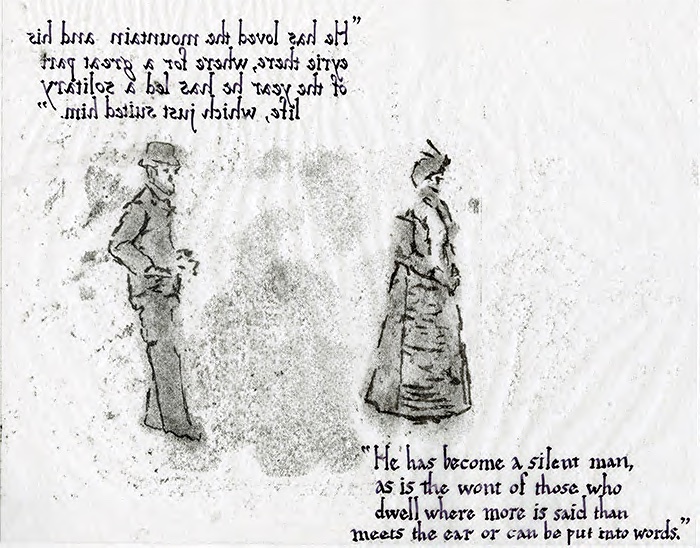 "He has loved the mountain and his
eyrie there, where for a great part
of the year he has led a solitary
life, which just suited him."
"He has become a silent man,
as is the wont of those who
dwell where more is said than
meets the ear or can be put into words."